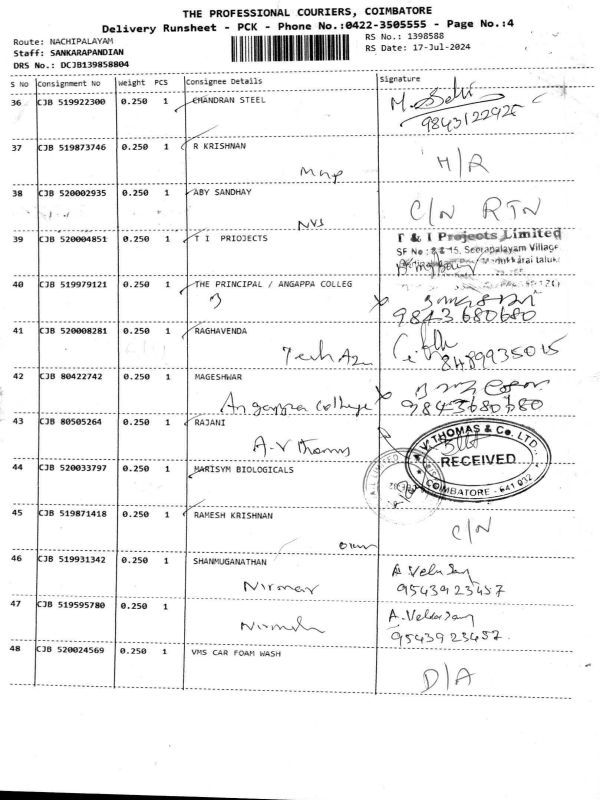 THE PROFESSIONAL COURIERS, COIMBATORE
Delivery Runsheet - PCK - Phone No.:0422-3505555 - Page No.:4
Route: NACHIPALAYAM
RS No.: 1398588
Staff: SANKARAPANDIAN
RS Date: 17-Jul-2024
DRS No.: DCJB139858804
S No Consignment No Weight PCS Consignee Details Signature
36 CJB 519922300 0.250 1 CHANDRAN STEEL
9843122925
37 CJB 519873746 0.250 1 R KRISHNAN
H/R
38 CJB 520002935 0.250 1 ABY SANDHAY
C/N RTN
NVS
39 CJB 520004851 0.250 1 T I PRIOJECTS
T & I Projects Limited
SF No : 8 & 15, Seerapalayam Village
40 CJB 519979121 0.250 1 THE PRINCIPAL / ANGAPPA COLLEG
9843680680
41 CJB 520008281 0.250 1 RAGHAVENDA
8489935015
42 CJB 80422742 0.250 1 MAGESHWAR
Angappa college
9843680680
43 CJB 80505264 0.250 1 RAJANI
A.V thomas
A.V. THOMAS & CO. LTD.,
RECEIVED
COIMBATORE - 641 032
44 CJB 520033797 0.250 1 MARISYM BIOLOGICALS
45 CJB 519871418 0.250 1 RAMESH KRISHNAN
C/N
46 CJB 519931342 0.250 1 SHANMUGANATHAN
9543923457
47 CJB 519595780 0.250 1
9543923457
48 CJB 520024569 0.250 1 VMS CAR FOAM WASH
D/A